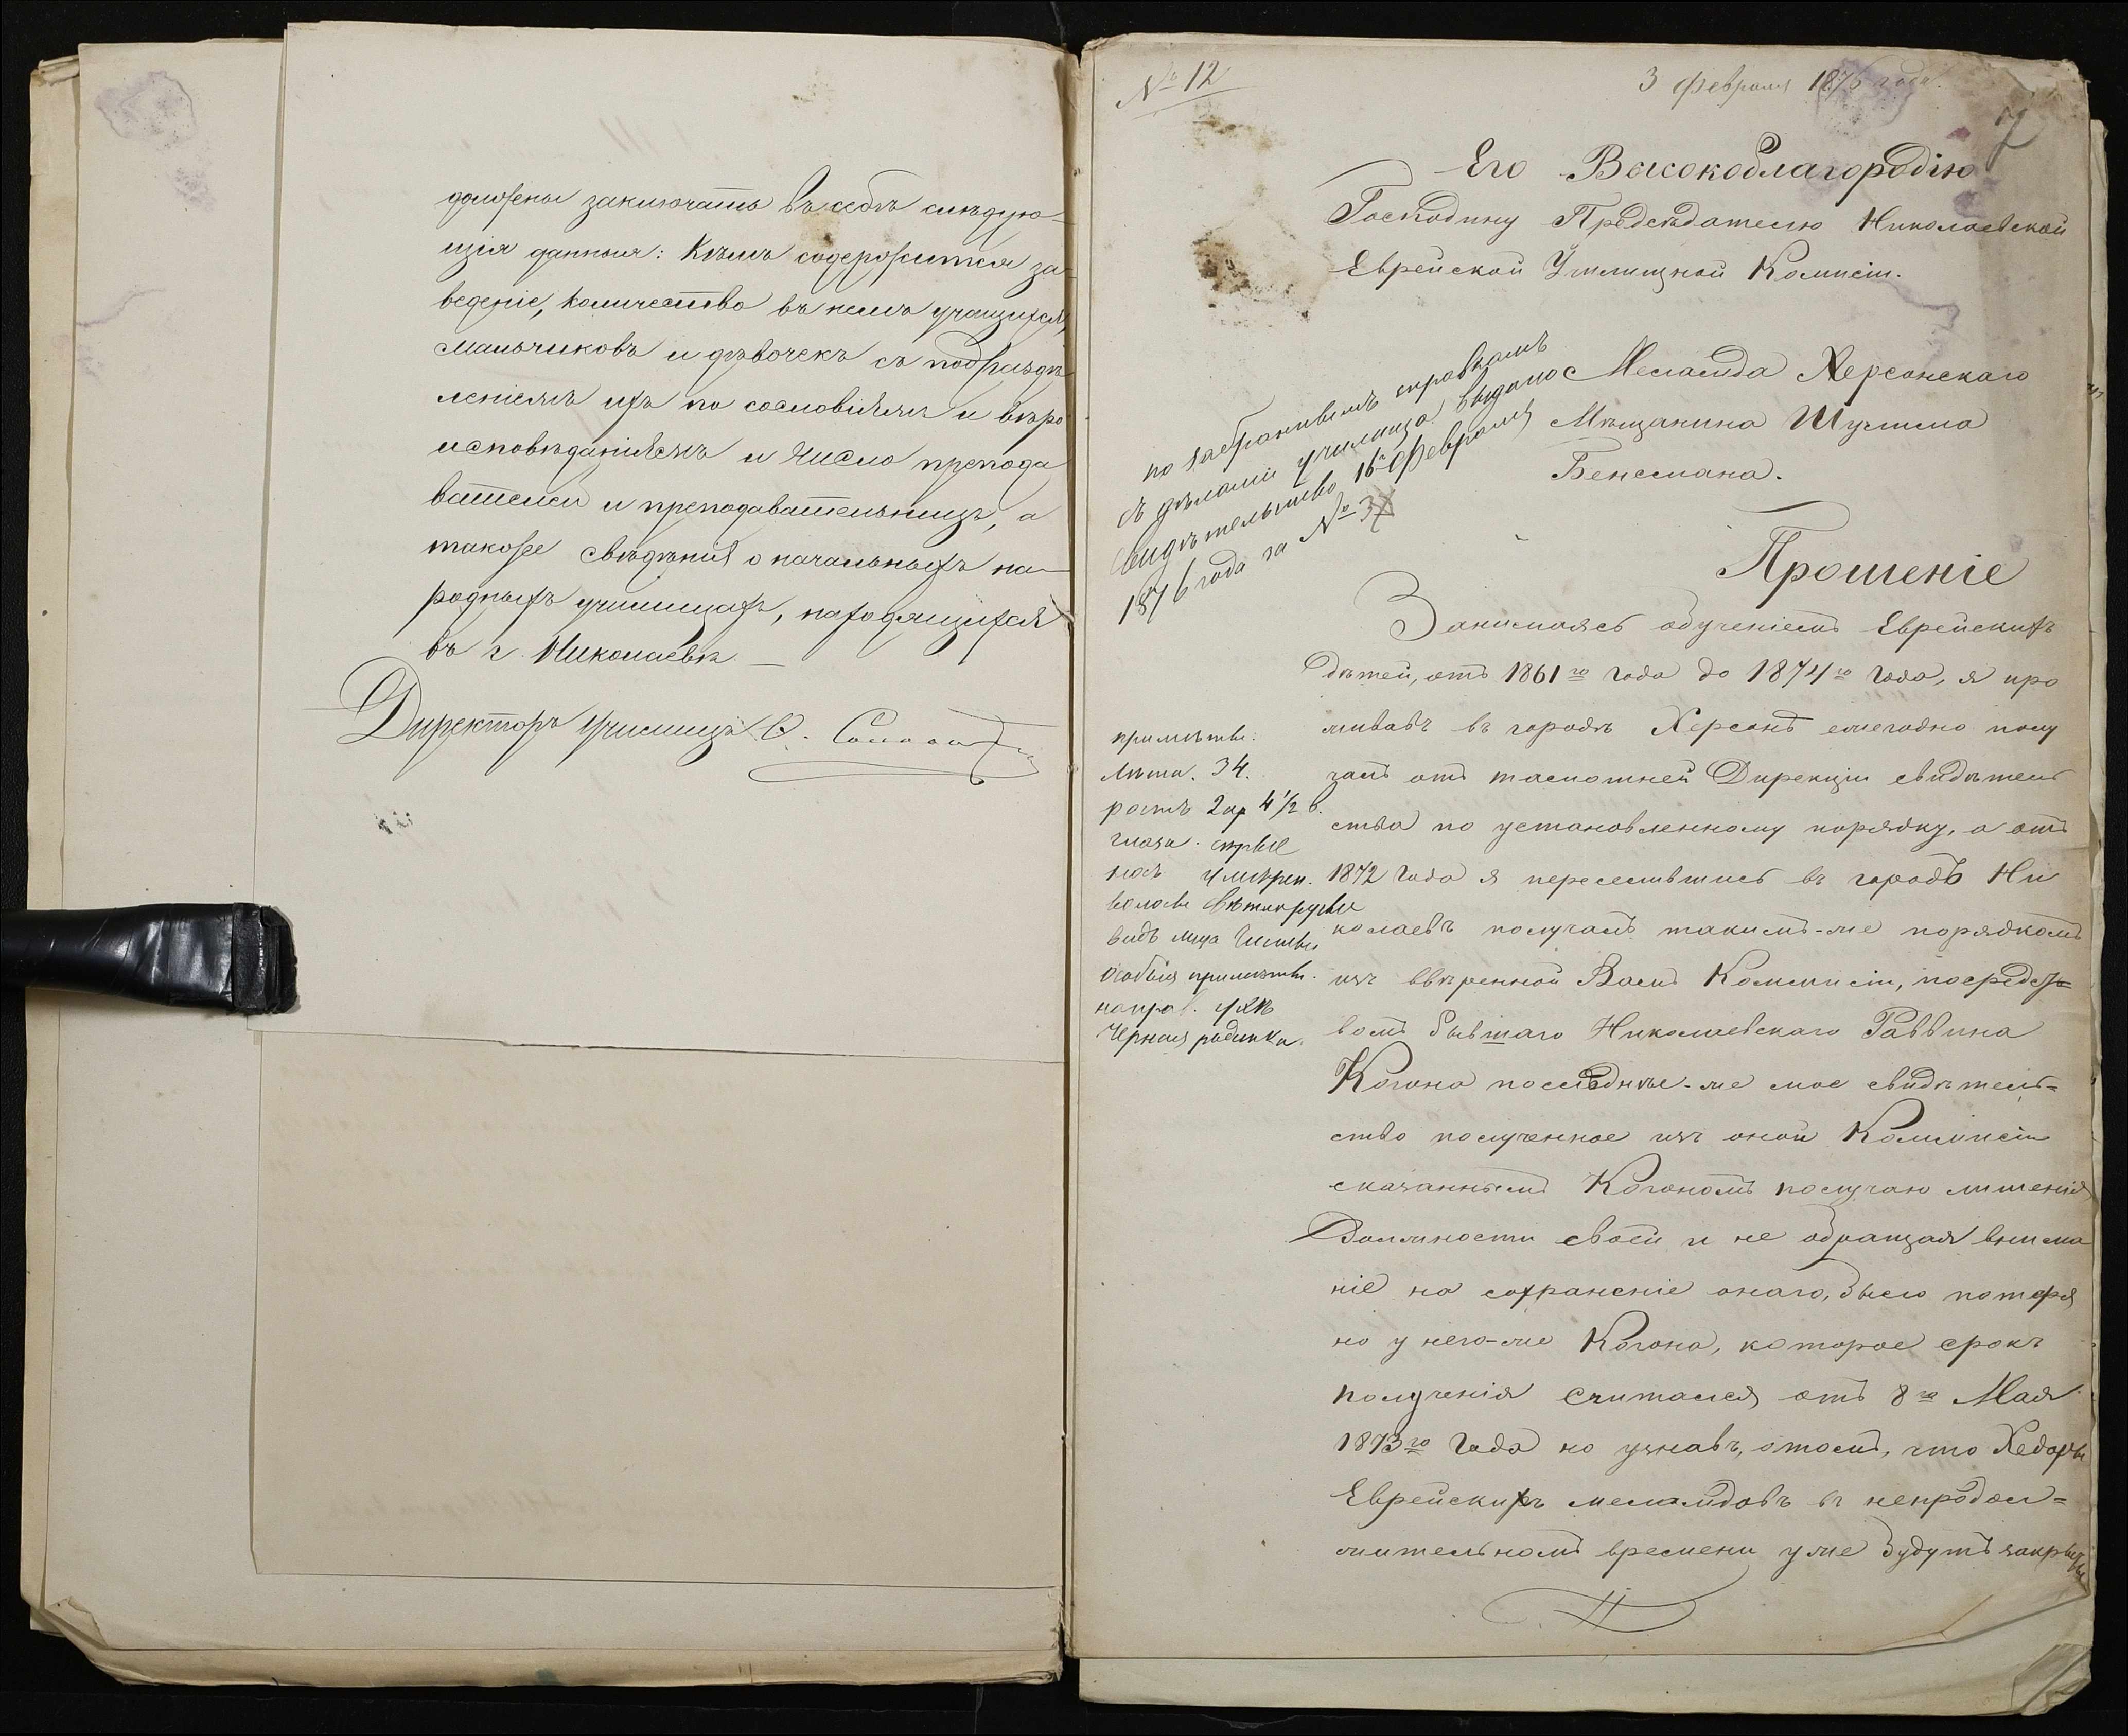 должны заключать въ себѣ слѣдую-
щія данныя: Кѣмъ содержится за-
веденіе, количество въ немъ учащихся,
мальчиковъ и дѣвочекъ съ подраздѣ
леніемъ ихъ по сословіямъ и вѣро
исповѣданіямъ и число препода
вателей и преподавательницъ, а
также свѣдѣнія о начальныхъ на-
родныхъ училищахъ, находящихся
въ г. Николаевѣ
Директоръ Училищъ
№ 12
3 февраля 1876 года.
7
Его Высокоблагородію
Господину Предсѣдателю Николаевской
Еврейской Училищной Комисіи.
Меламда Херсонскаго
Мѣщанина Шулима
Бенсмана.
по забраннымъ справкамъ
съ дѣлами училища выдано
свидѣтельство 16 февраля
1876 года за № 37
Прошеніе
Занимаясь обученіемъ Еврейскихъ
дѣтей, отъ 1861го года до 1874го года, я про
живавъ въ городѣ Херсонѣ ежегодно полу
чалъ отъ тамошней Дирекціи свидѣтель
ства по установленному порядку, а отъ
1872 года я переселившись въ городъ Ни
колаевъ получалъ такимъ-же порядкомъ
изъ ввѣренной Вамъ Коммисіи, посредст=
вомъ бывшаго Николаевскаго Раввина
Когона послѣднѣе-же мое свидѣтель=
ство полученное изъ оной Коммисіи
сказаннымъ Когономъ по случаю лишенія
Должности своей и не обращая внима
ніе на сохраненіе онаго, было потеря
но у него-же Когона, которое срокъ
полученія считался отъ 8го Мая
1873го года но узнавъ, отомъ, что Хедары
Еврейскихъ меламдовъ въ непродол=
жительномъ времени уже будутъ закрыты
примѣты:
Лѣта. 34.
ростъ 2 ар 4 1/2 в.
глаза. сѣрые
носъ умѣрен.
волосы свѣтлорусые
видъ лица чистый
особыя примѣты.
на прав. щекѣ
черная родинка.